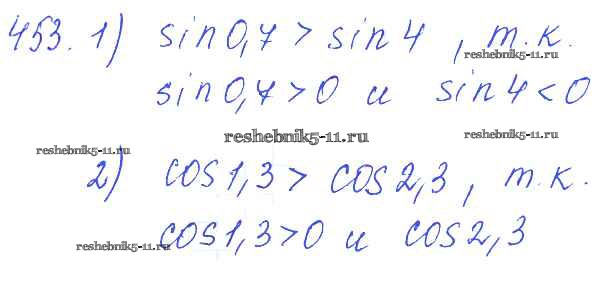 453. 1) sin 0,7 > sin 4, т.к.
reshebnik5-11.ru
sin 0,7 > 0 и sin 4 < 0
reshebnik5-11.ru
reshebnik5-11.ru
reshebnik5-11.ru
2) cos 1,3 > cos 2,3, т.к.
cos 1,3 > 0 и cos 2,3
reshebnik5-11.ru